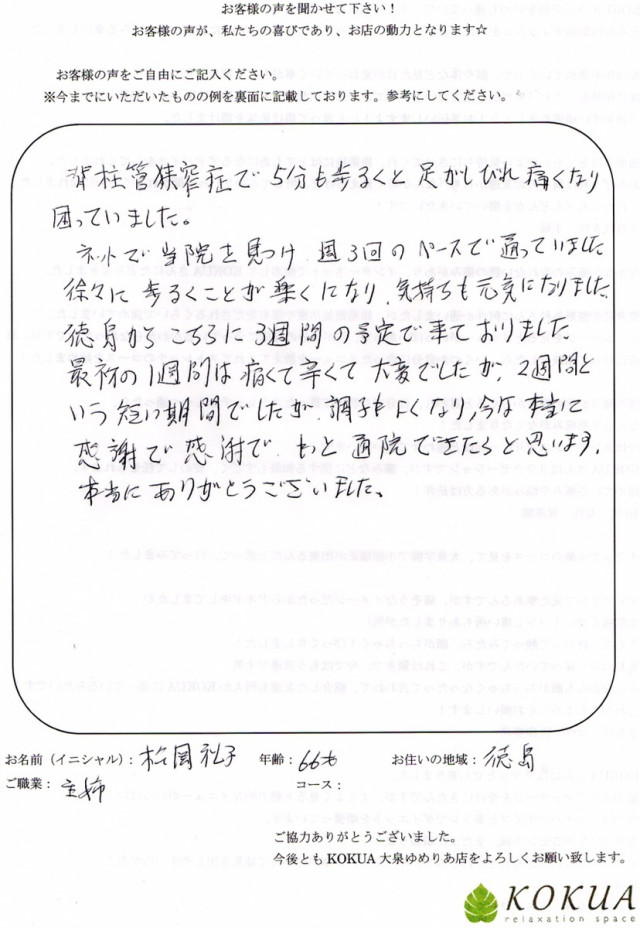 お客様の声を聞かせて下さい！
お客様の声が、私たちの喜びであり、お店の動力となります☆
お客様の声をご自由にご記入ください。
※今までにいただいたものの例を裏面に記載しております。参考にしてください。
脊柱管狭窄症で5分も歩るくと足がしびれ痛くなり
困っていました。
ネットで当院を見つけ、週3回のペースで通っていました
徐々に歩るくことが楽になり、気持ちも元気になりました。
徳島からこちらに3週間の予定で来ておりました
最初の1週間は痛くて辛くて大変でしたが、2週間と
いう短い期間でしたが調子もよくなり、今は本当に
感謝で感謝で、もっと通院できたらと思います。
本当にありがとうございました。
お名前（イニシャル）：松岡礼子　年齢：66才　お住いの地域：徳島
ご職業：主婦　コース：
ご協力ありがとうございました。
今後ともKOKUA大泉ゆめりあ店をよろしくお願い致します。
KOKUA
relaxation space